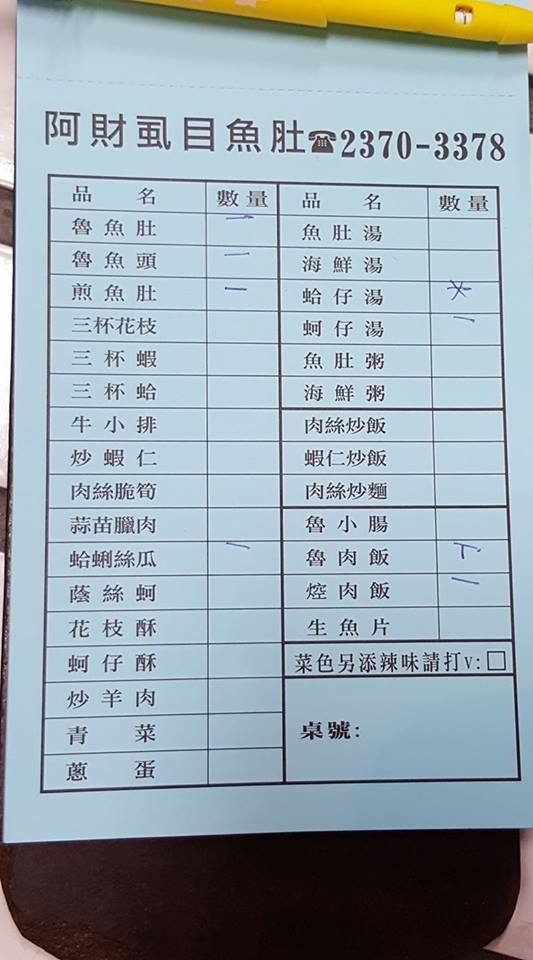 阿財虱目魚肚☎2370-3378
品名 數量
魯魚肚 一
魯魚頭 一
煎魚肚 一
三杯花枝
三杯蝦
三杯蛤
牛小排
炒蝦仁
肉絲脆筍
蒜苗臘肉
蛤蜊絲瓜 一
蔭絲蚵
花枝酥
蚵仔酥
炒羊肉
青菜
蔥蛋
品名 數量
魚肚湯
海鮮湯
蛤仔湯
蚵仔湯 一
魚肚粥
海鮮粥
肉絲炒飯
蝦仁炒飯
肉絲炒麵
魯小腸
魯肉飯 下
焢肉飯 一
生魚片
菜色另添辣味請打v:□
桌號: